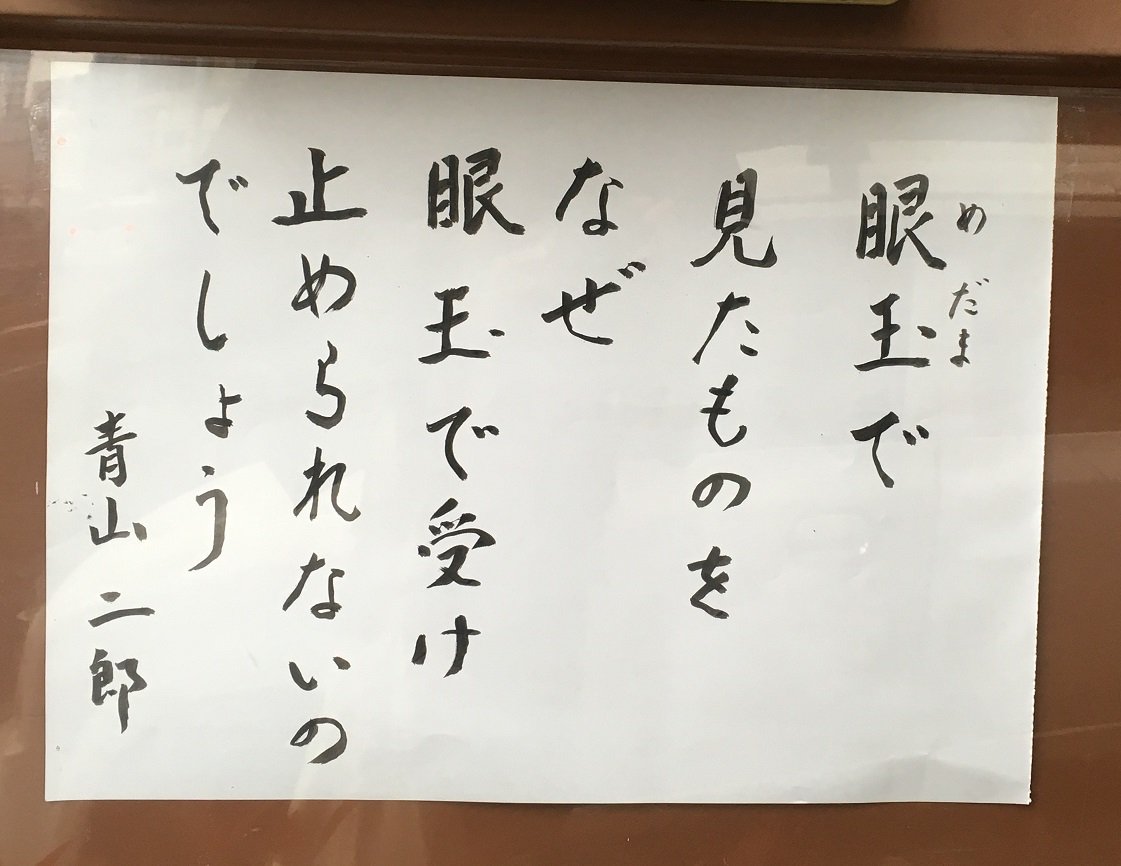 眼玉で
めだま
見たものを
なぜ
眼玉で受け
止められないの
でしょう
青山二郎